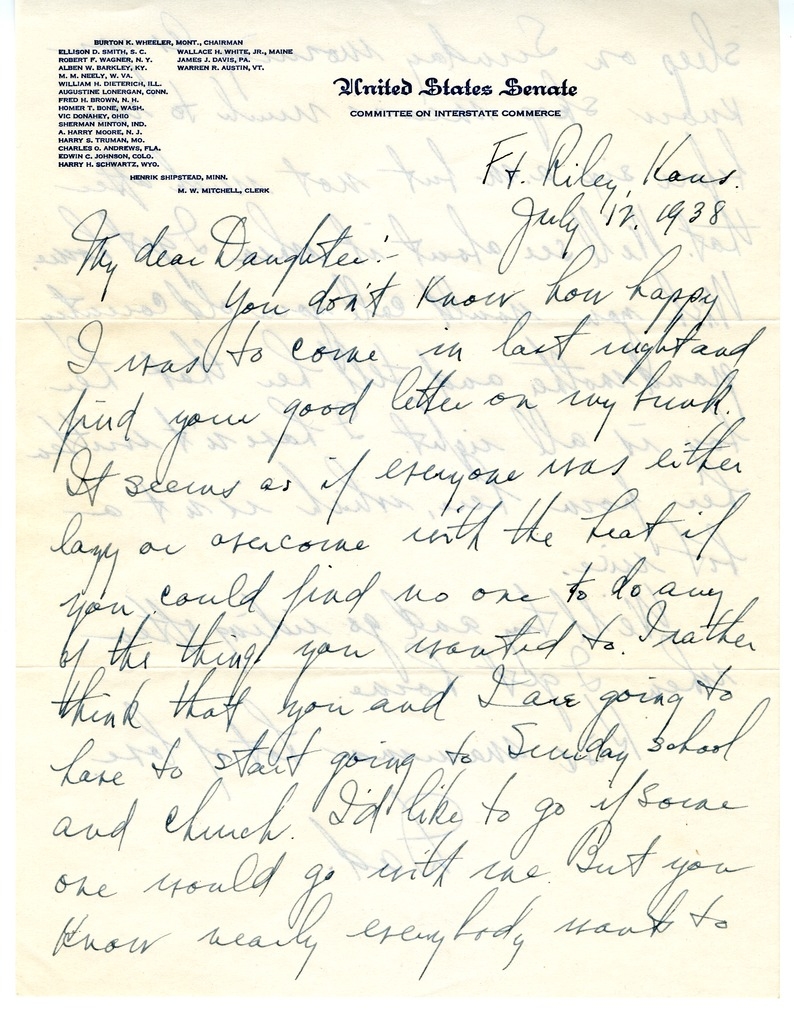 BURTON K. WHEELER, MONT., CHAIRMAN
ELLISON D. SMITH, S. C. WALLACE H. WHITE, JR., MAINE
ROBERT F. WAGNER, N. Y. JAMES J. DAVIS, PA.
ALBEN W. BARKLEY, KY. WARREN R. AUSTIN, VT.
M. M. NEELY, W. VA.
WILLIAM H. DIETERICH, ILL.
AUGUSTINE LONERGAN, CONN.
FRED H. BROWN, N. H.
HOMER T. BONE, WASH.
VIC DONAHEY, OHIO
SHERMAN MINTON, IND.
A. HARRY MOORE, N. J.
HARRY S. TRUMAN, MO.
CHARLES O. ANDREWS, FLA.
EDWIN C. JOHNSON, COLO.
HARRY H. SCHWARTZ, WYO.
HENRIK SHIPSTEAD, MINN.
M. W. MITCHELL, CLERK
United States Senate
COMMITTEE ON INTERSTATE COMMERCE
Ft. Riley, Kans.
July 12, 1938
My dear Daughter:-
You don't know how happy
I was to come in last night and
find your good letter on my bunk.
It seems as if everyone was either
lazy or overcome with the heat if
you could find no one to do any
of the things you wanted to. I rather
think that you and I are going to
have to start going to Sunday school
and church. I'd like to go if some
one would go with me. But you
know nearly everybody wants to